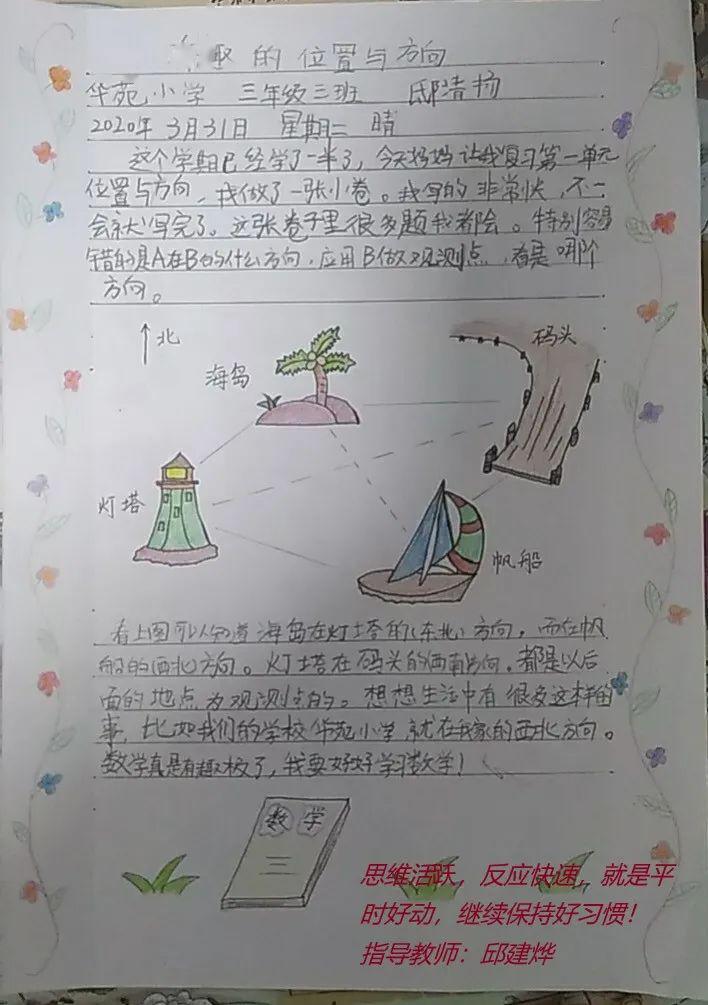 取的位置与方向
华苑小学 三年级三班 邸清扬
2020年3月31日 星期二 晴
这个学期已经学了一半了，今天妈妈让我复习第一单元
位置与方向，我做了一张小卷。我写的非常快，不一
会就写完了。这张卷子里很多题我都会。特别容易
错的是A在B的什么方向，应用B做观测点，看是哪个
方向。
北
码头
海岛
灯塔
帆船
看上图可以知道海岛在灯塔的（东北）方向，而在帆
船的西北方向。灯塔在码头的西南方向，都是以后
面的地点为观测点的。想想生活中有很多这样的
事，比如我们的学校华苑小学就在我家的西北方向。
数学真是有趣极了，我要好好学习数学！
数学
三
思维活跃，反应快速，就是平
时好动，继续保持好习惯！
指导教师：邱建烨